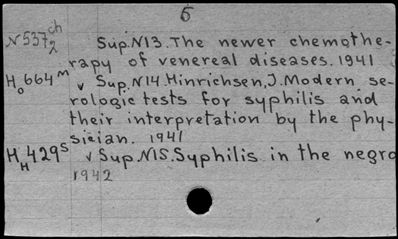 6
N537 ch/2 Sup.N13.The newer chemothe-
rapy of venereal diseases.1941
Ho664m v Sup.N14.Hinrichsen,J.Modern se-
rologic tests for syphilis and
their interpretation by the phy-
sician. 1941
HH429s v Sup.N15.Syphilis in the negro
1942